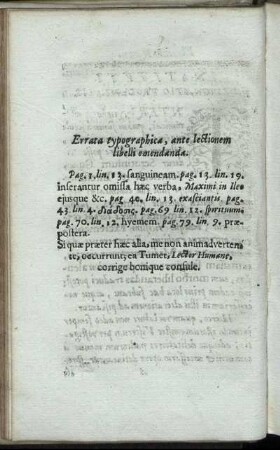 Errata typographica, ante lectionem
libelli emendanda.
Pag. 1. lin. 13. sanguineam. pag. 13. lin. 19.
Inserantur omissa hæc verba, Maximi in Ileo
ejusque &c. pag 40. lin. 13. exasciantis. pag.
43. lin. 4. διάδοσις. pag. 69 lin. 12. spirituum.
pag. 70. lin. 12. hyemem. pag. 79. lin. 9. præ-
postera.
Si quæ præter hæc alia, me non animadverten-
te, occurrunt; ea Tu mer, Lector Humane,
corrige bonique consule.